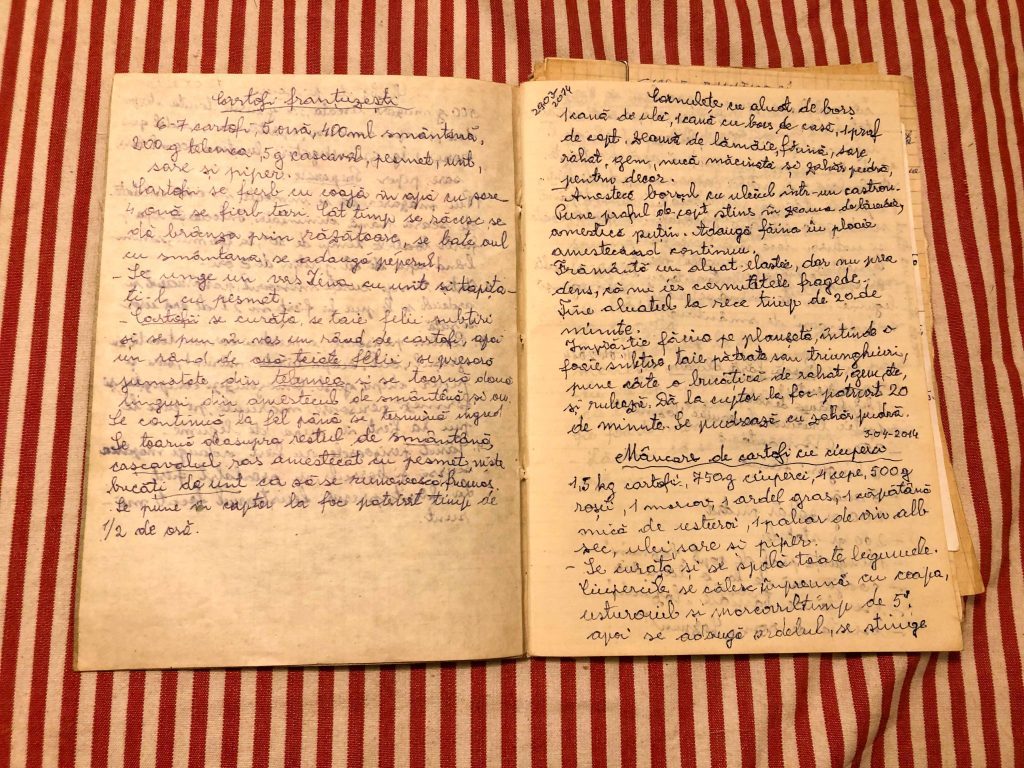 Cartofi frantuzesti
6-7 cartofi, 5 ouă, 400 ml smântână,
200 g telemea, 5g cascaval, pesmet, unt,
sare si piper.
- Cartofii se fierb cu coajă în apă cu sare
4 ouă se fierb tari. Cât timp se răcesc se
dă brânza prin răzătoare, se bate oul
cu smântâna, se adaugă piperul.
- Se unge un vas Jena cu unt si tapeta-
ti-l cu pesmet.
- Cartofii se curăța, se taie felii subtiri
si se pun în vas un rând de cartofi, apoi
un rând de ouă taiate felii, se presară
jumatate din telemea si se toarnă doua
linguri din amestecul de smântână si ou
Se continuă la fel până se termină ingred
Se toarnă deasupra restul de smântână,
cascavalul ras amestecat cu pesmet, niste
bucati de unt ca să se rumenească frumos.
Se pune in cuptor la foc potrivit timp de
1/2 de oră.
2014
Cornulete cu aluat de bors
1 cană de ulei, 1 cană cu bors de casă, 1 praf
de copt. Zeamă de lămâie, făină, sare,
rahat, gem, nucă măcinată și zahăr pudră,
pentru decor.
Amestecă borșul cu uleiul într-un castron.
Pune praful de copt stins în zeama de lămâie,
amestică puțin. Adaugă făina în ploaie
amestecând continuu.
Frământă un aluat elastic, dar nu prea
dens, că nu ies cornuletele fragede.
Ține aluatul la rece timp de 20 de
minute.
Imprăștie făina pe planșetă, întinde o
foaie subtire, taie pătrate sau triunghiuri,
pune câte o bucățică de rahat, gem, etc,
și rulează. Dă la cuptor la foc potrivit 20
de minute. Se pudrează cu zahăr pudră.
3-04-2014
Mâncare de cartofi cu ciuperci
1,5 kg cartofi, 750g ciuperci, 4 cepe, 500 g
roșii, 1 morcov, 1 ardel gras, 1 căpătână
mică de usturoi, 1 pahar de vin alb
sec, ulei, sare si piper.
- Se curăta și se spală toate legumele.
Ciupercile se călesc împreună cu ceapa,
usturoiul si morcovul timp de 5'
apoi se adaugă ardelul, se stinge